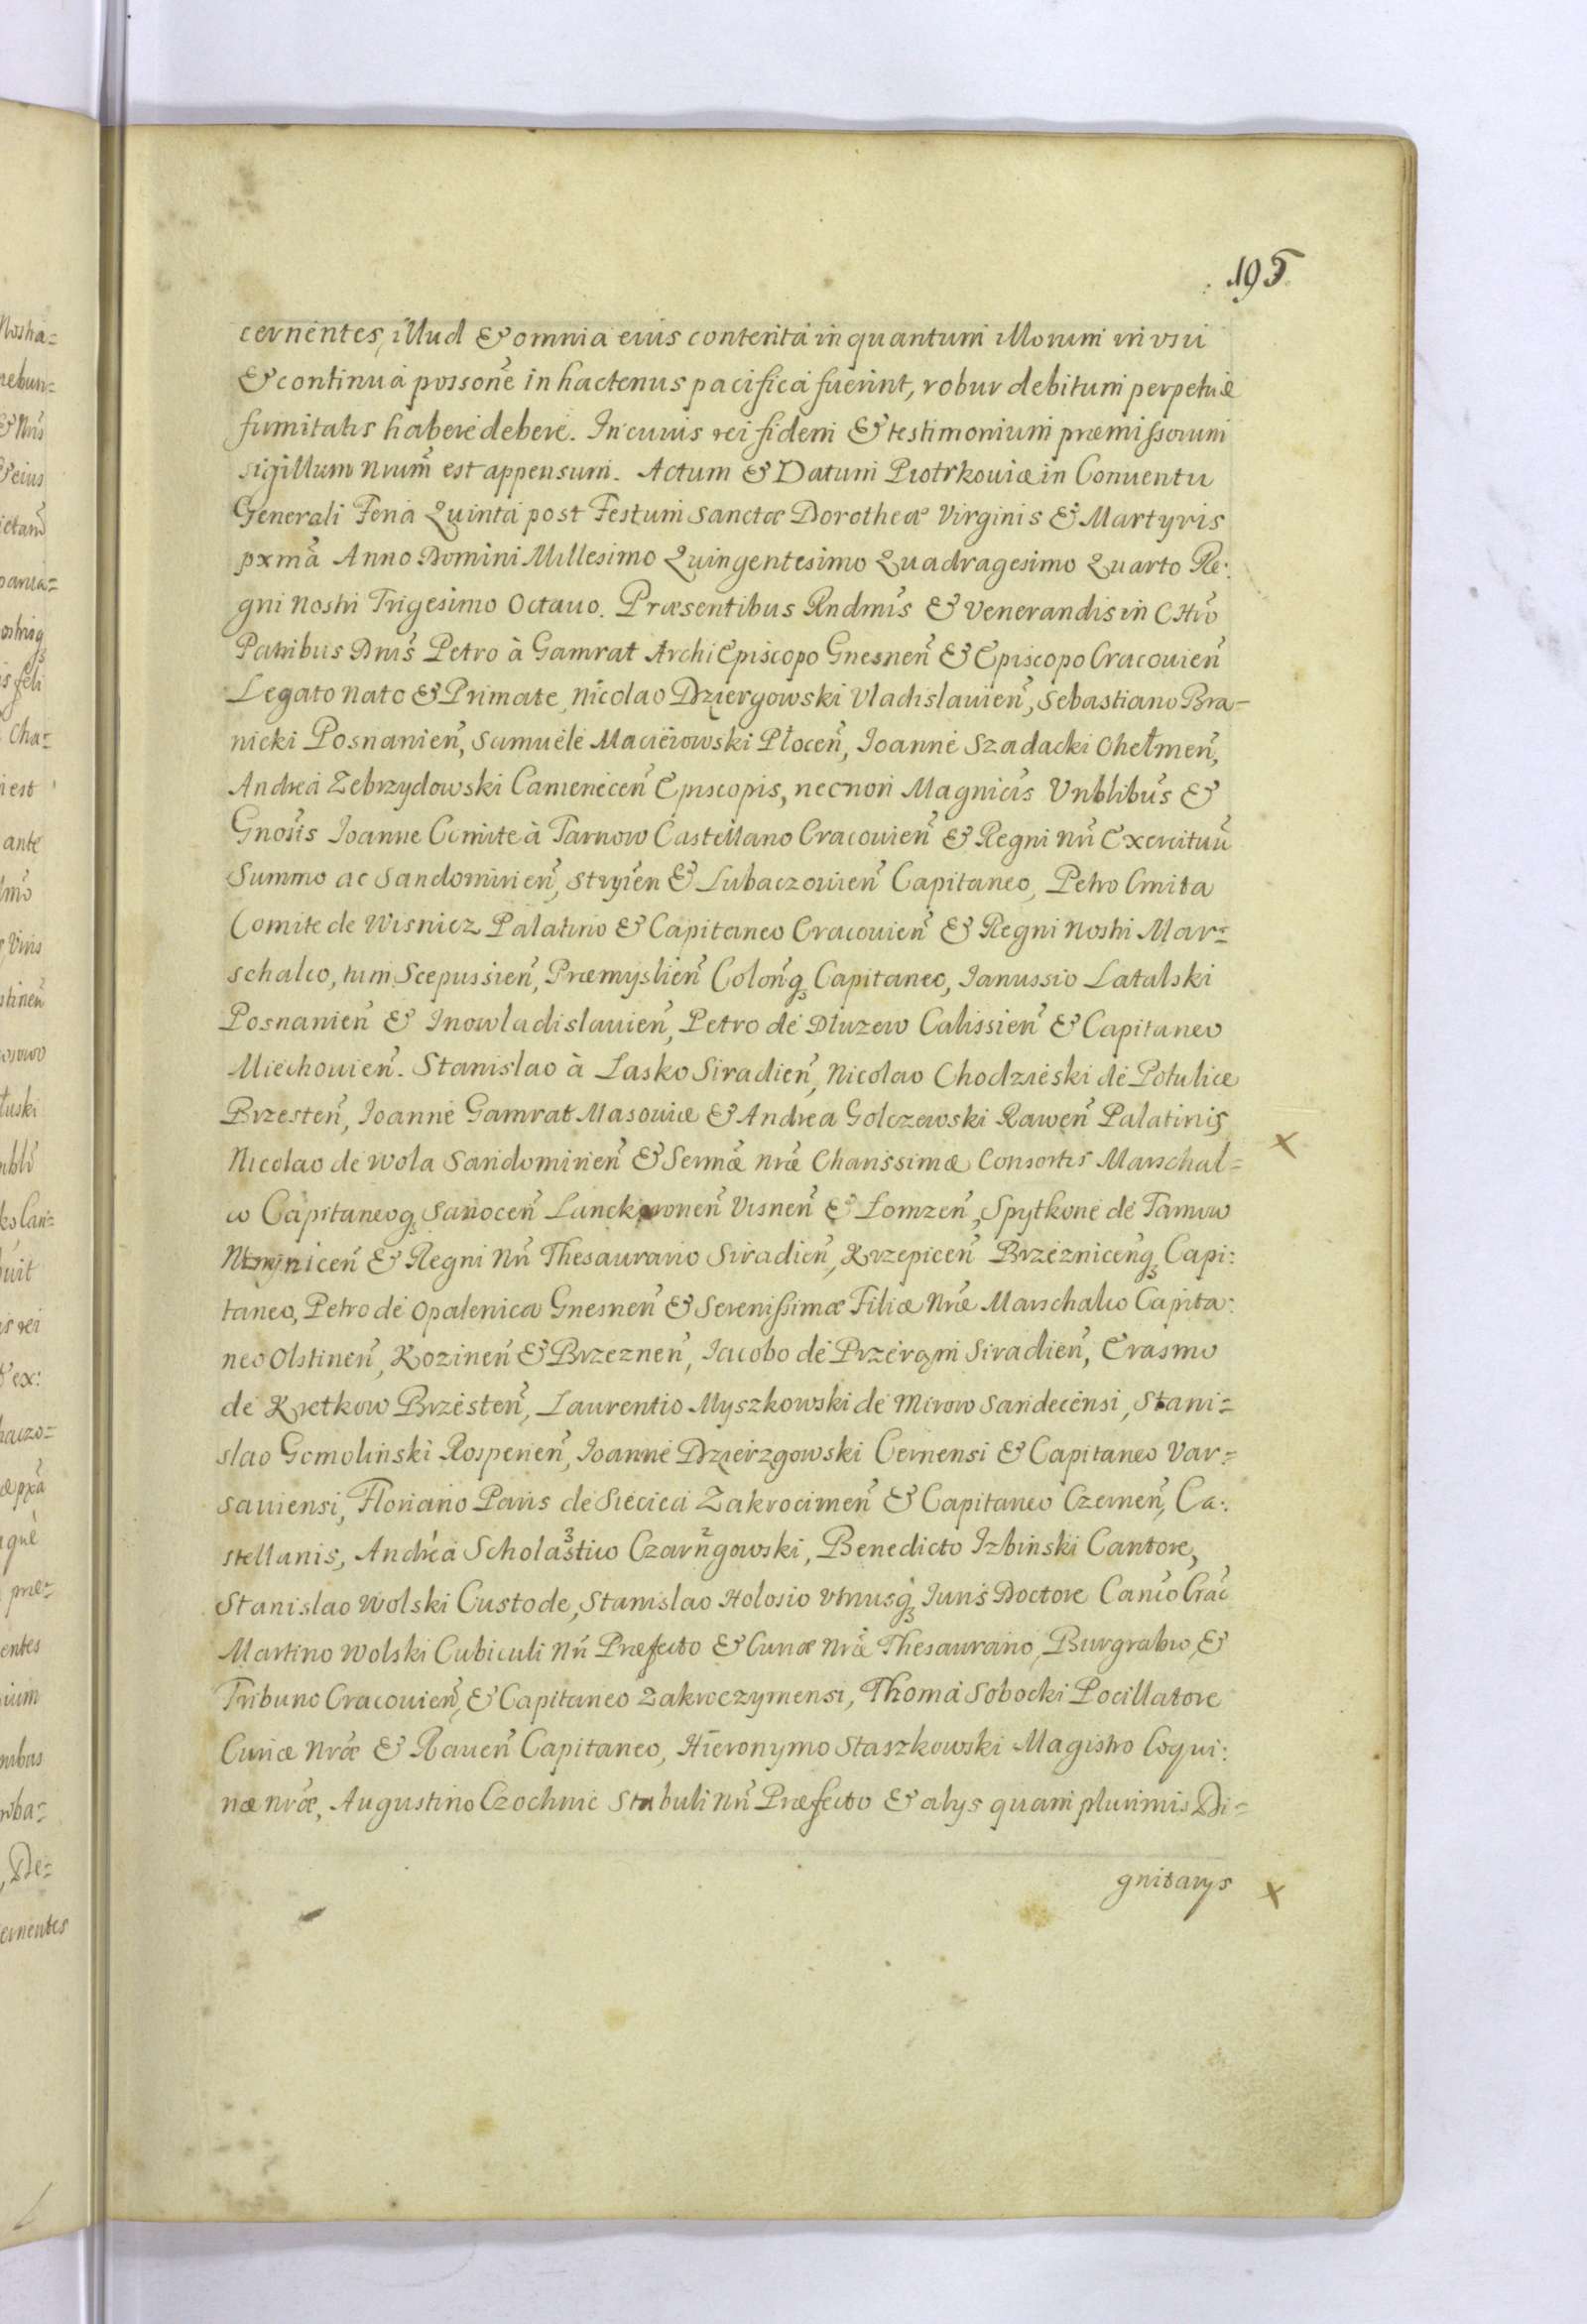 195
cernentes, illud & omnia eius contenta in quantum illorum in vsu
& continua possone in hactenus pacifica fuerint, robur debitum perpetuæ
firmitatis habere debere. In cuius rei fidem & testimonium præmissorum
sigillum nrum̃ est appensum. Actum & Datum Piotrkouiæ in Conuentu
Generali Feria Quinta post Festum Sanctæ Dorotheæ Virginis & Martyris
pxmã Anno Domini Millesimo Quingentesimo Quadragesimo Quarto Re:
gni Nostri Trigesimo Octauo. Præsentibus Rndmis̃ & Venerandis in Chro
Patribus Dnis̃ Petro à Gamrat ArchiEpiscopo Gnesneñ & Episcopo Cracouieñ
Legato Nato & Primate, Nicolao Dziergowski Vladislauieñ, Sebastiano Bra-
nicki Posnanieñ, Samuele Macieiowski Płoceñ, Joanne Szadacki Chełmeñ,
Andrea Zebrzydowski Cameniceñ Episcopis, necnon Magnicis Vnblibus̃ &
Gnosis̃ Joanne Comite à Tarnow Castellano Cracouieñ & Regni Nri̇̃ Exercituũ
Summo ac Sandomirieñ, Stryieñ & Lubaczouieñ Capitaneo, Petro Cmita
Comite de Wisnicz Palatino & Capitaneo Cracouieñ & Regni Nostri Mar=
schalco, tum Scepussieñ, Præmyslieñ Coloñq̃ Capitaneo, Janussio Latalski
Posnanieñ & Inowladislauieñ, Petro de Dłuzew Calissieñ & Capitaneo
Miechouieñ. Stanislao à Lasko Siradieñ, Nicolao Chodzieski de Potulice
Brzesteñ, Joanne Gamrat Masouiæ & Andrea Golczewski Raweñ Palatinis
Nicolao de Wola Sandomirieñ & Sermæ̃ nræ̃ Charissimæ Consortis Marschal=
co Capitaneoq̃ Sanoceñ Lanckoroneñ Visneñ & Lomzeñ, Spytkone de Tarnow
& Regni Nri̇̃ Thesaurario Siradieñ, Krzepiceñ Brzezniceñq̃ Capi:
taneo, Petro de Opalenica Gnesneñ & Serenissimæ Filiæ Nræ̃ Marschalco Capita:
neo Olstineñ, Kozineñ & Brzezneñ, Jacobo de Przerąm Siradieñ, Erasmo
de Kretkow Brzesteñ, Laurentio Myszkowski de Mirow Sandecensi, Stani=
slao Gomolinski Rospericñ, Joanne Dzierzgowski Cernensi & Capitaneo Var=
sauiensi, Floriano Paris de Siecica Zakrocimeñ & Capitaneo Czerneñ, Ca:
stellanis, Andrea Scholastico Czarñgowski, Benedicto Izbinski Cantore,
Stanislao Wolski Custode, Stanislao Holosio Vtriusq̃ Juris Doctore Canco̊ Crac̃
Martino Wolski Cubiculi Nri̇̃ Præfecto & Curiæ Nræ̃ Thesaurario, Burgrabio, &
Tribuno Cracouieñ, & Capitaneo Zakroczymensi, Thoma Sobocki Pocillatore
Curiæ Nræ̃ & Raueñ Capitaneo, Hieronymo Staszkowski Magistro Coqui:
næ nræ̃, Augustino Czochnic Stabuli Nri̇̃ Præfecto & alys quam plurimis Di=
gnitarys